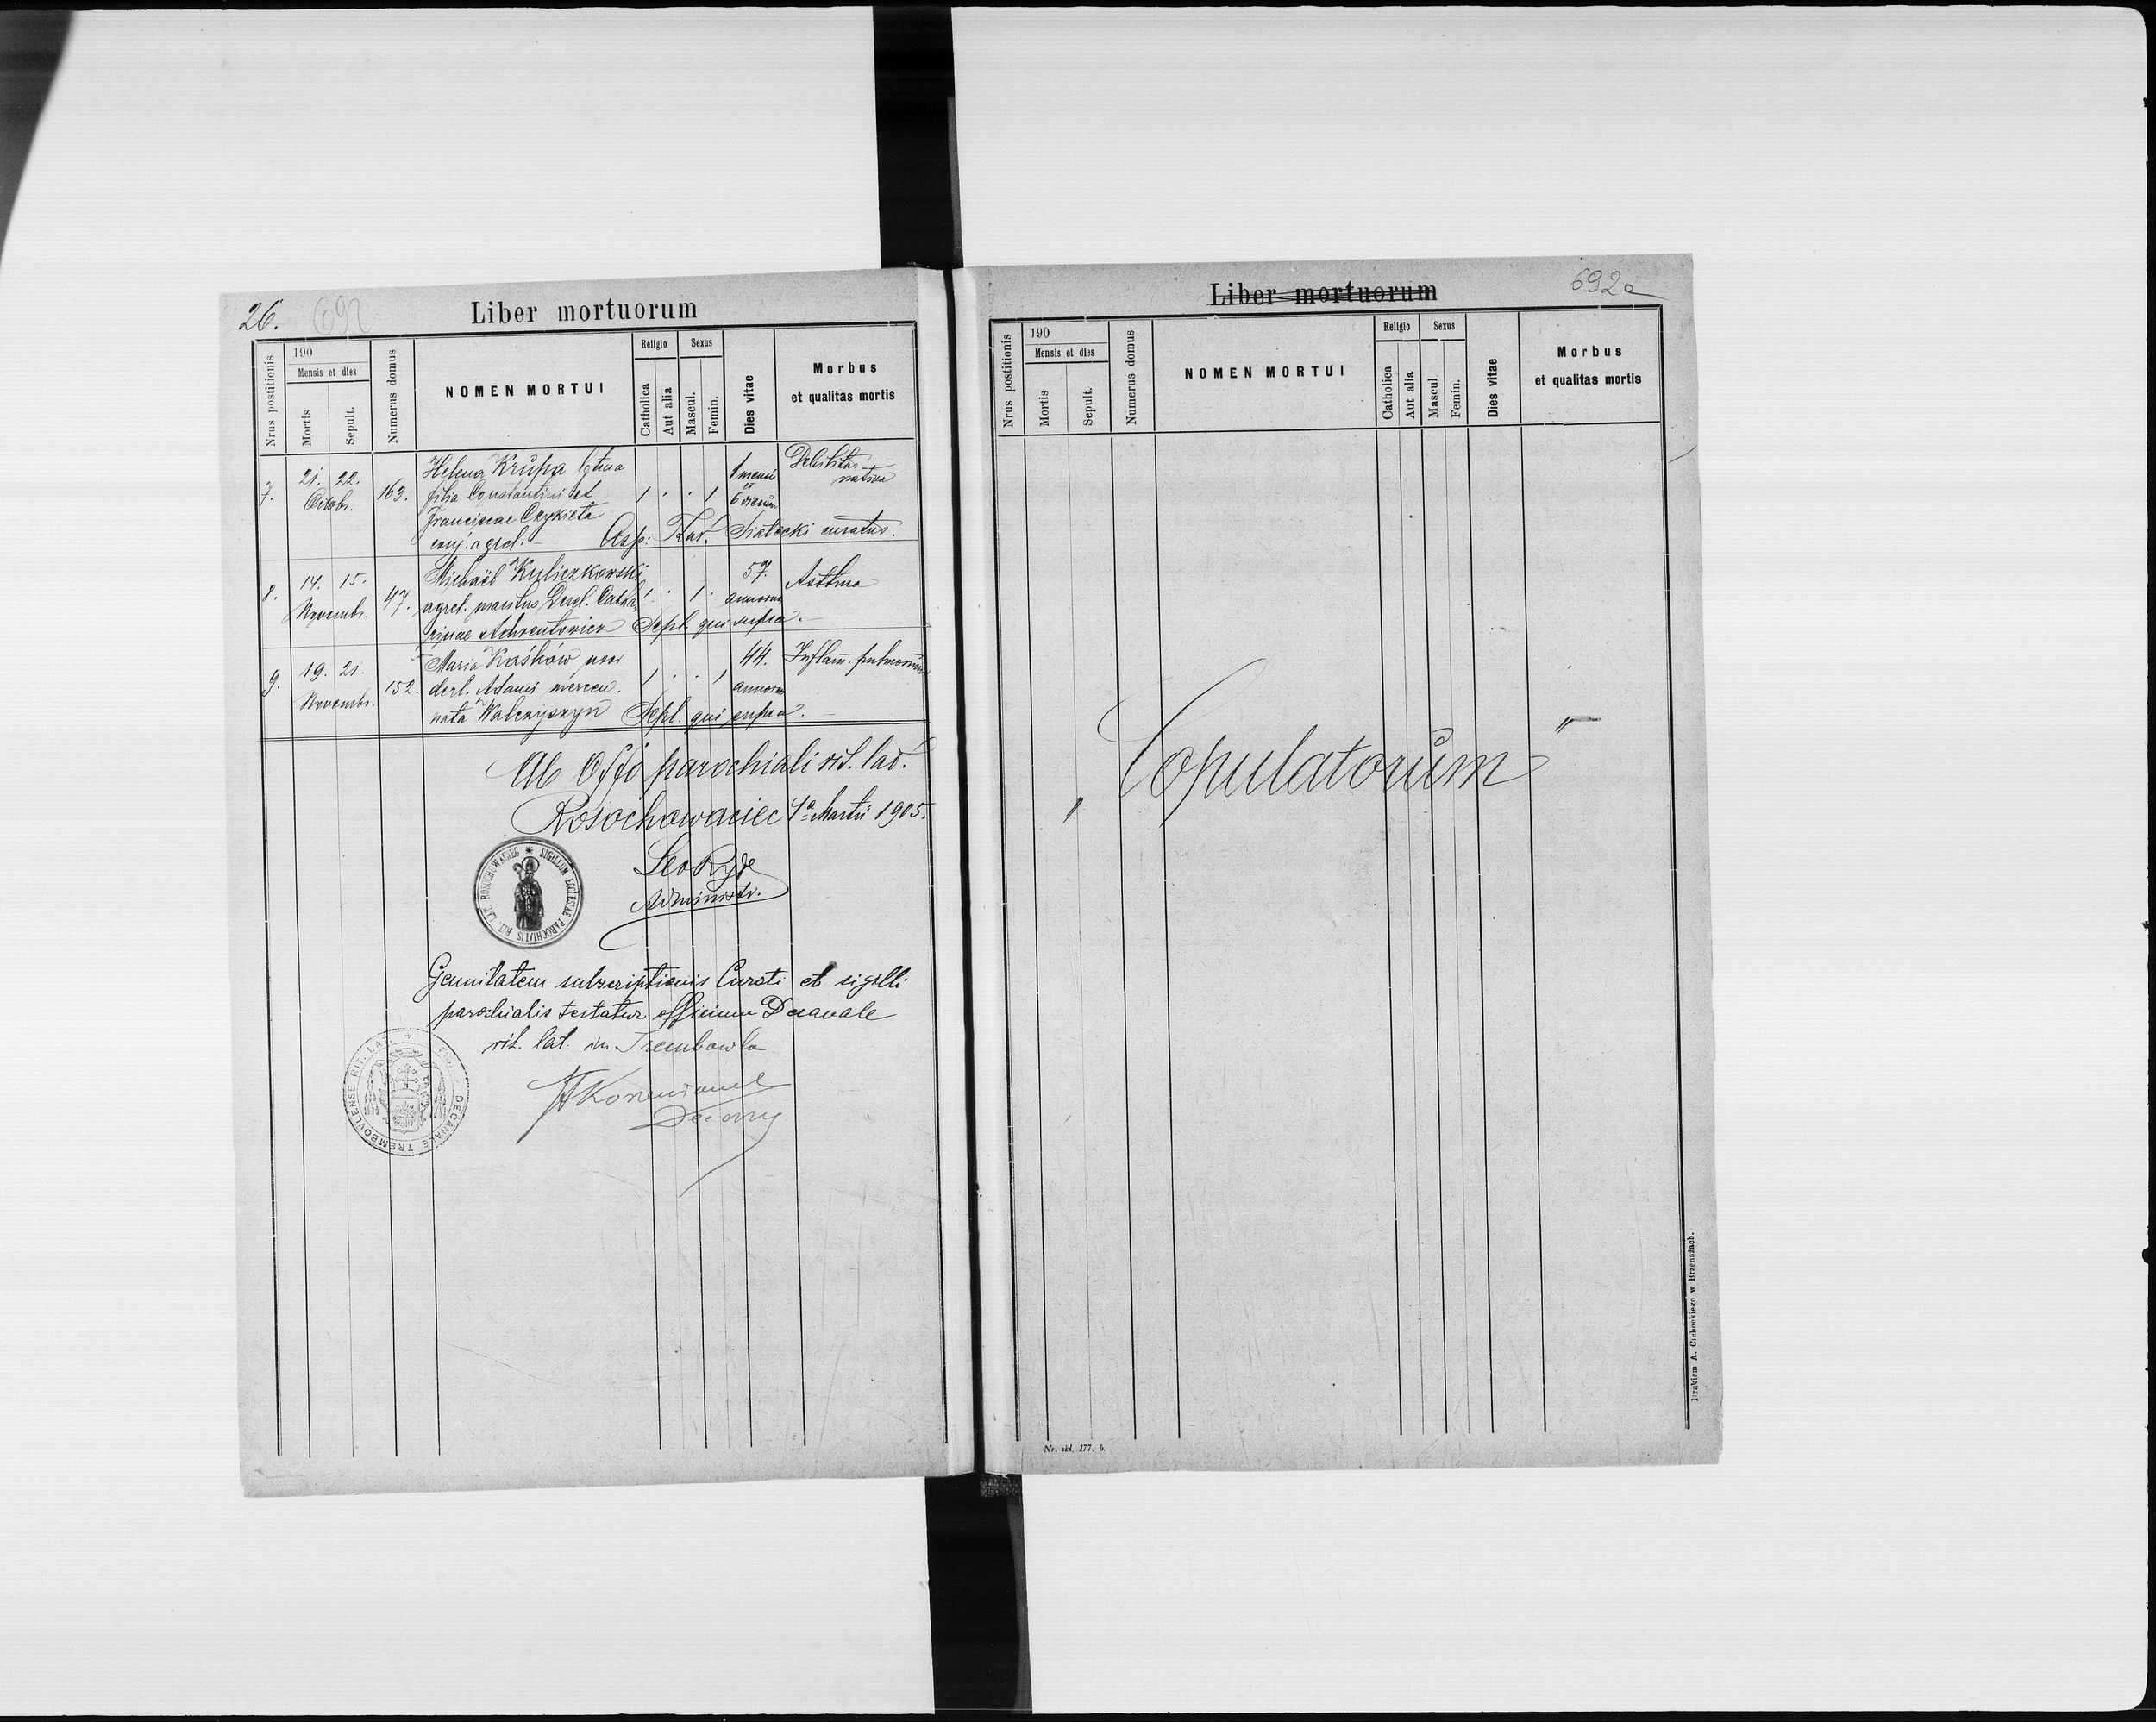 26.
692
Liber mortuorum
Nrus postitionis
190
Mensis et dies
Mortis
Sepult.
Numerus domus
NOMEN MORTUI
Religio
Catholica
Aut alia
Sexus
Mascul.
Femin.
Dies vitae
Morbus
et qualitas mortis
7.
21. 22.
Octobr.
163.
Helena Krupa lgtma
filia Constantini et
Franciscae Czykieta
conj. agrel.
1 . . 1
1 mensis
et
6 dierum
Debilitas
nativa
Asp: Kar. Siatecki curatus.
8.
14. 15.
Novembr.
47.
Michaël Kuliczkowski
agrel. maritus Derel. Catha
rinae
1 . 1 .
57.
annorum
Asthma
Sepl. qui supra.
9.
19. 21.
Novembr.
152.
Maria Kaśków uxor
derl. Adami mercen.
nata Walczyszyn
1 . . 1
44.
annorum
Inflam. pulmonum
Sepl. qui supra.
Ab Offo parochiali rit. lat.
Rosochowaciec 1a Martii 1905.
Leo Ryde
Administr.
SIGILLUM ECCLESIAE PAROCHIALIS RIT. LAT. ROSOCHOWACIEC
Genuitatem subscriptionis Curati et sigilli
parochialis testatur officium Decanale
rit. lat. in Trembowla
DECANALE TREMBOVLENSE RIT. LAT.
Liber mortuorum
692a
Nrus postitionis
190
Mensis et dies
Mortis
Sepult.
Numerus domus
NOMEN MORTUI
Religio
Catholica
Aut alia
Sexus
Mascul
Femin.
Dies vitae
Morbus
et qualitas mortis
„Copulatorum"
Nr. skl. 177. b.
Drukiem A. Cichockiego w Brzeżanach.